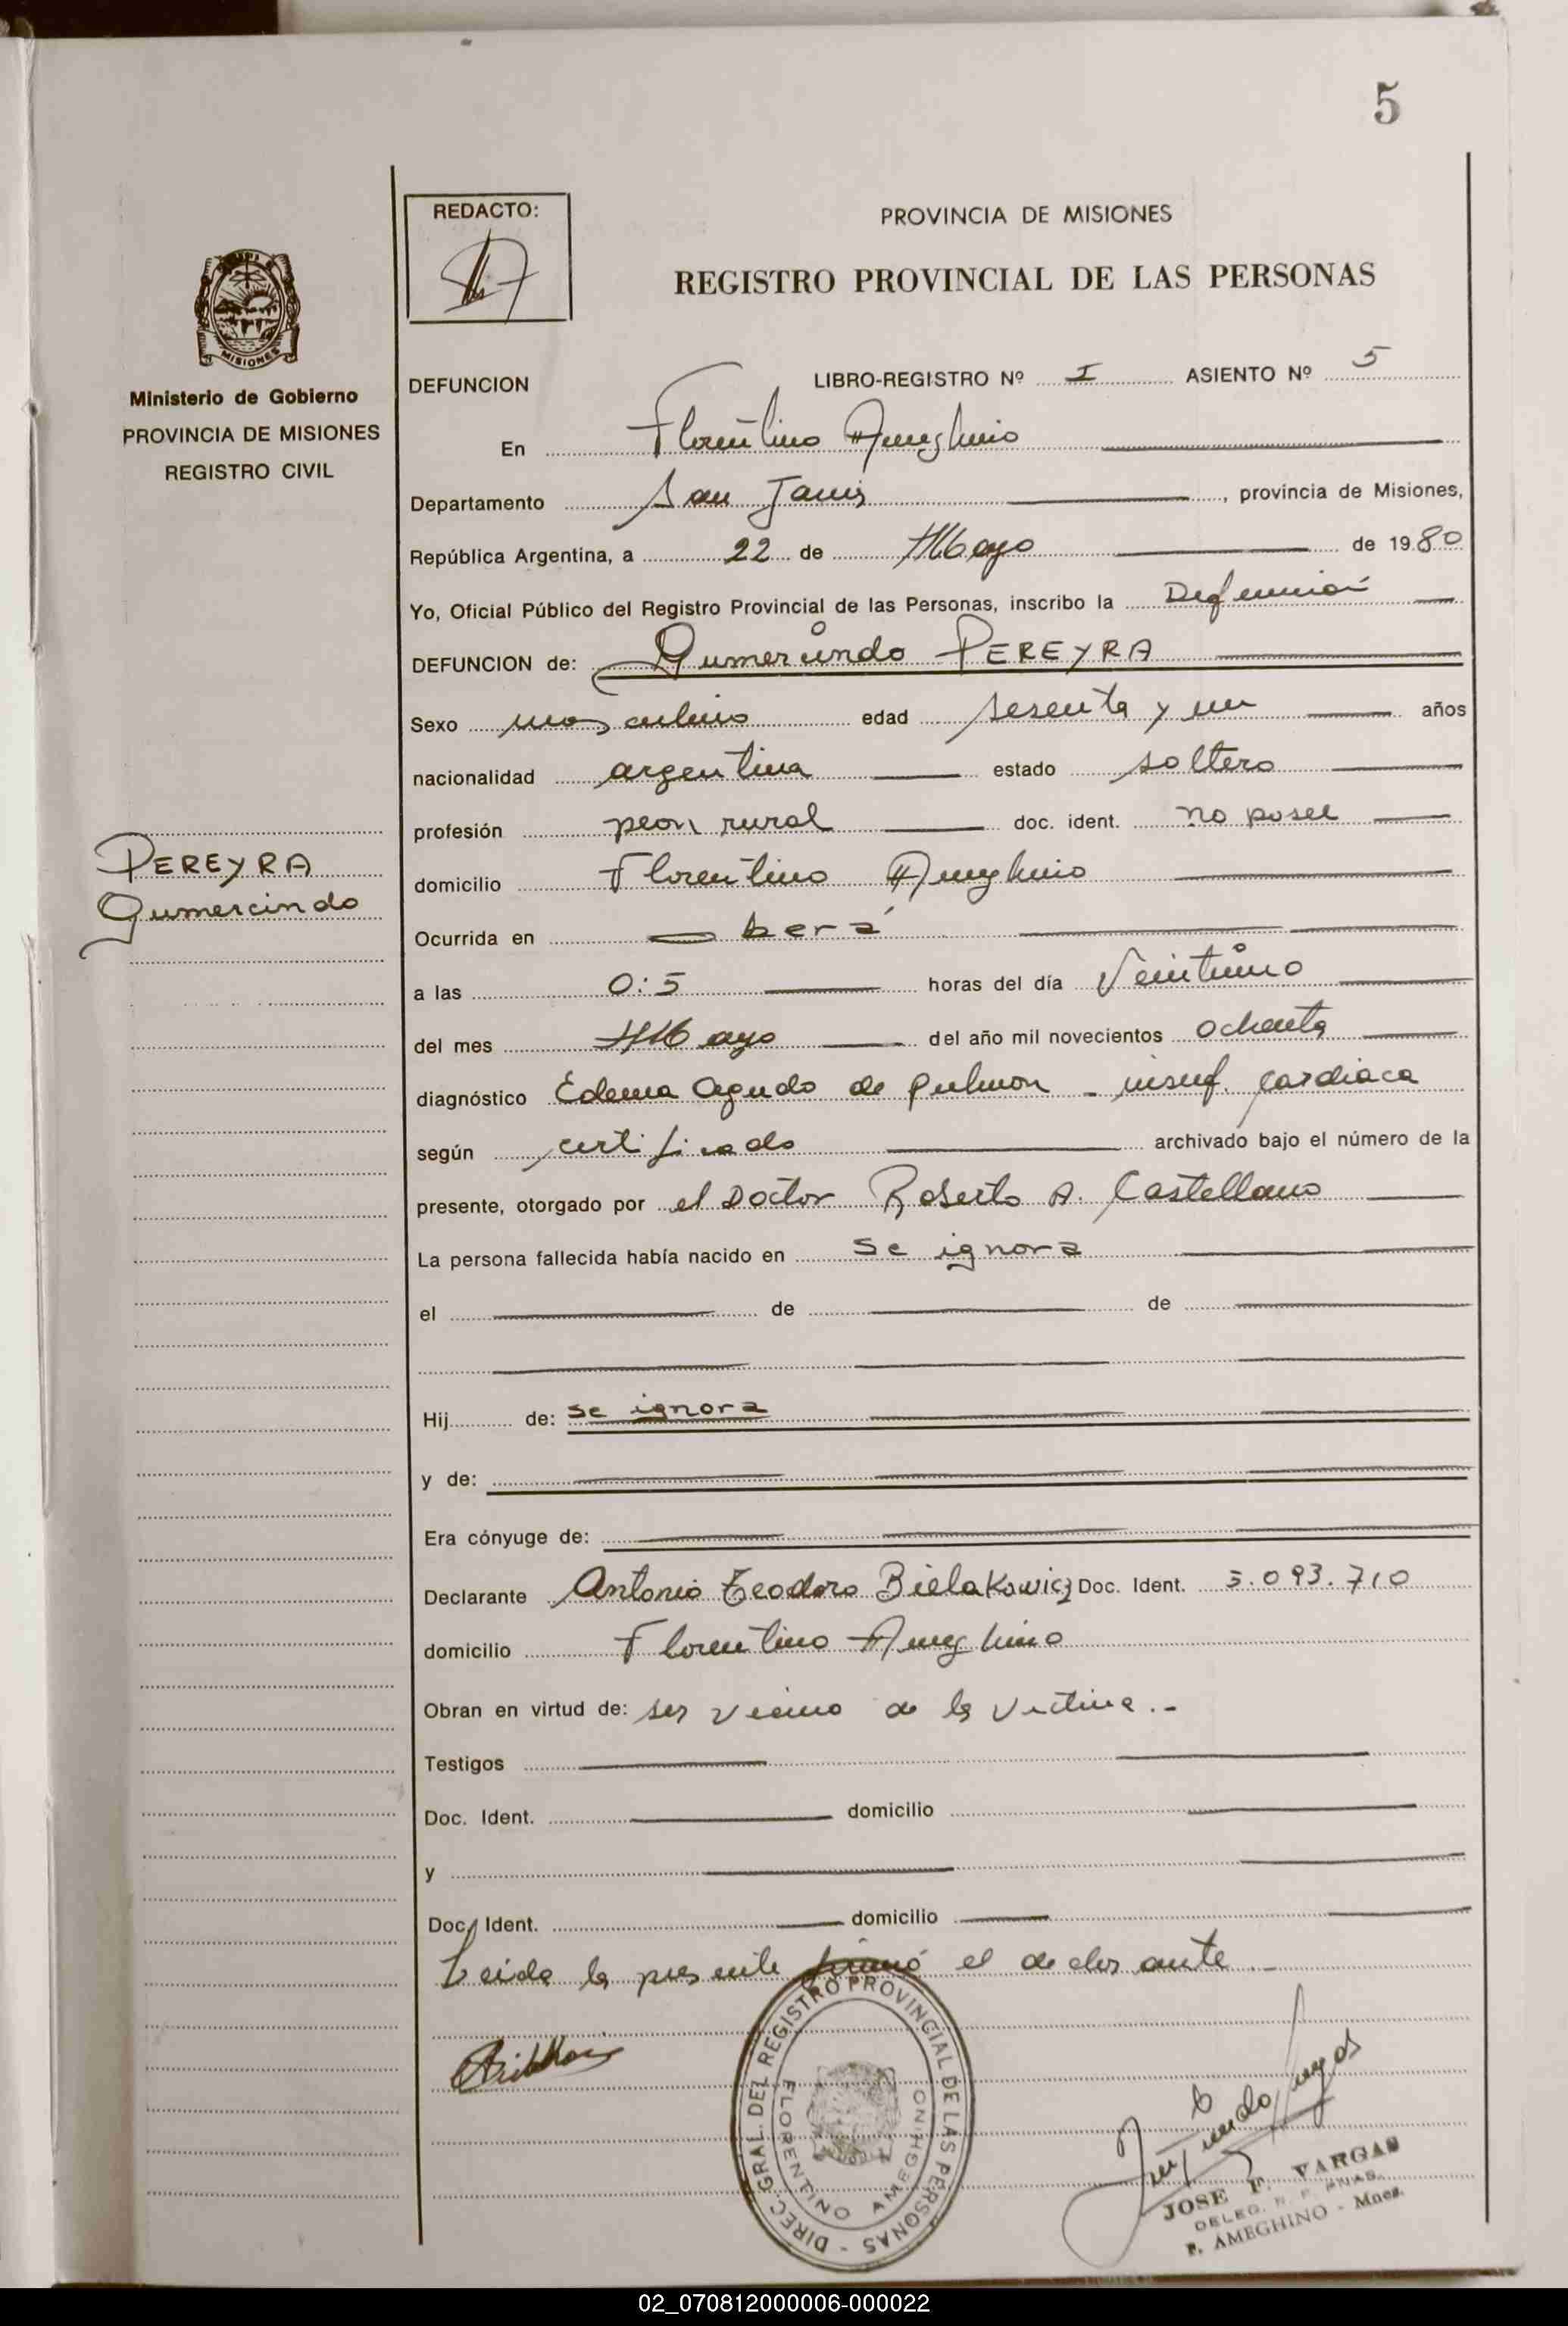 5
REDACTO:
PROVINCIA DE MISIONES
REGISTRO PROVINCIAL DE LAS PERSONAS
MISIONES
Ministerio de Gobierno
PROVINCIA DE MISIONES
REGISTRO CIVIL
DEFUNCION LIBRO-REGISTRO Nº I ASIENTO Nº 5
En Florentino Ameghino
Departamento San Javier, provincia de Misiones,
República Argentina, a 22 de Mayo de 1980
Yo, Oficial Público del Registro Provincial de las Personas, inscribo la Defunción
DEFUNCION de: Gumercindo PEREYRA
Sexo masculino edad sesenta y un años
nacionalidad argentina estado soltero
profesión peon rural doc. ident. no posee
PEREYRA
Gumercindo
domicilio Florentino Ameghino
Ocurrida en Oberá
a las 0:5 horas del día Veintiuno
del mes Mayo del año mil novecientos ochenta
diagnóstico Edema Agudo de pulmon - insuf. cardiaca
según certificado archivado bajo el número de la
presente, otorgado por el Doctor Roberto A. Castellano
La persona fallecida había nacido en se ignora
el de de
Hij de: se ignora
y de:
Era cónyuge de:
Declarante Antonio Teodoro Bielakowicz Doc. Ident. 3.093.710
domicilio Florentino Ameghino
Obran en virtud de: ser vecino de la victima.-
Testigos
Doc. Ident. domicilio
y
Doc. Ident. domicilio
Leida la presente firmó el declarante.-
DIREC. GRAL. DEL REGISTRO PROVINCIAL DE LAS PERSONAS -
FLORENTINO AMEGHINO
JOSE F. VARGAS
DELEG. R. P. PNAS.
F. AMEGHINO - Mnes.
02_070812000006-000022